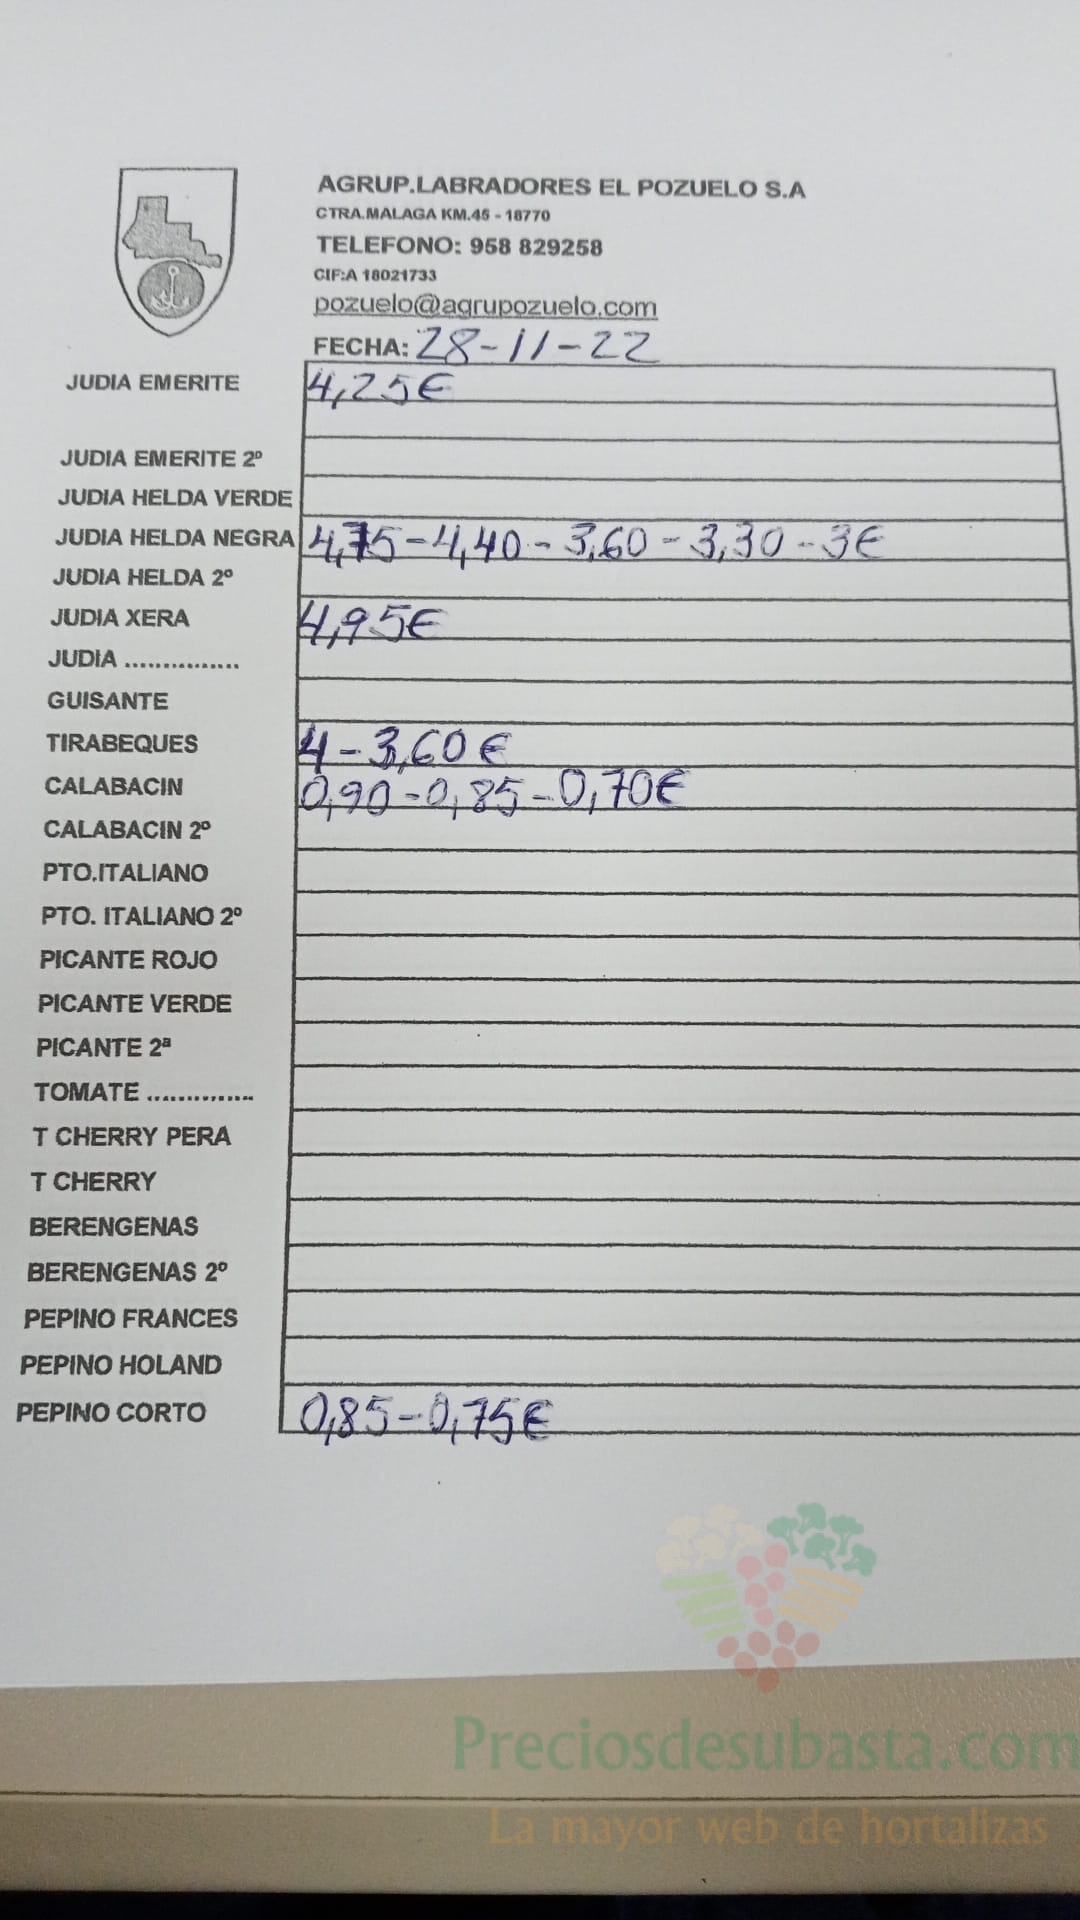 AGRUP.LABRADORES EL POZUELO S.A
CTRA.MALAGA KM.45 - 18770
TELEFONO: 958 829258
CIF:A 18021733
pozuelo@agrupozuelo.com
FECHA: 28-11-22
JUDIA EMERITE 4,25€
JUDIA EMERITE 2º
JUDIA HELDA VERDE
JUDIA HELDA NEGRA 4,75-4,40-3,60-3,30-3€
JUDIA HELDA 2º
JUDIA XERA 4,95€
JUDIA ...............
GUISANTE
TIRABEQUES 4-3,60€
CALABACIN 0,90-0,85-0,70€
CALABACIN 2º
PTO.ITALIANO
PTO. ITALIANO 2º
PICANTE ROJO
PICANTE VERDE
PICANTE 2ª
TOMATE ..............
T CHERRY PERA
T CHERRY
BERENGENAS
BERENGENAS 2º
PEPINO FRANCES
PEPINO HOLAND
PEPINO CORTO 0,85-0,75€
Preciosdesubasta.com
La mayor web de hortalizas